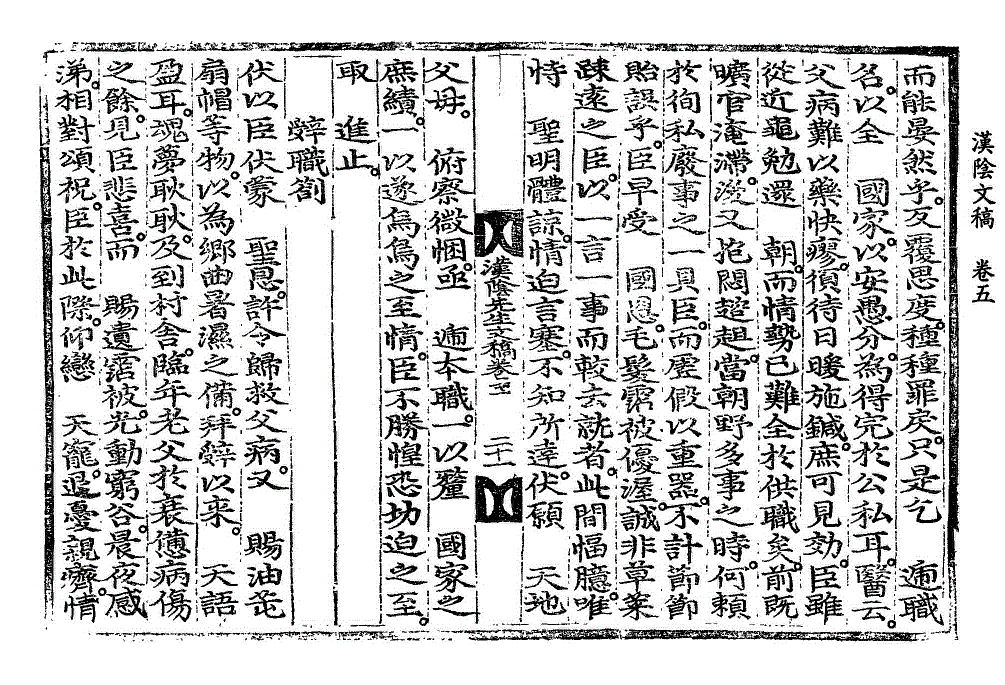 漢陰文稿　卷五
而能晏然乎。反覆思度。種種罪戾。只是乞　遞職
名。以全　國家。以安愚分。為得完於公私耳。醫云。
父病難以藥快瘳。須待日暖施鍼。庶可見効。臣雖
從近黽勉還　朝。而情勢已難全於供職矣。前旣
曠官淹滯。濈又抱悶趑趄。當朝野多事之時。何賴
於徇私廢事之一具臣。而虛假以重器。不計節節
貽誤乎。臣早受　國恩。毛髮霑被優渥。誠非草萊
疎遠之臣。以一言一事而較去就者。此間愊臆。唯
恃　聖明體諒。情迫言蹇。不知所達。伏願　天地
父母。　俯察微悃。亟　遞本職。一以釐　國家之
庶績。一以遂烏鳥之至情。臣不勝惶恐切迫之至。
取　進止。
辭職箚
伏以臣伏蒙　聖恩。許令歸救父病。又　賜油芚
扇帽等物。以為鄕曲暑濕之備。拜辭以來。　天語
盈耳。魂夢耿耿。及到村舍。臨年老父於衰憊病傷
之餘。見臣悲喜。而　賜遺霑被。光動窮谷。晨夜感
涕。相對頌祝。臣於此際。仰戀　天寵。退憂親癠。情
漢陰先生文稿卷之五　二十一